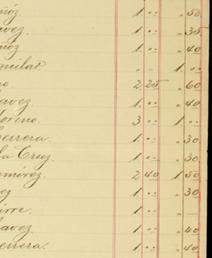 ñóz. 1 .. .50
avez. 1 .. .35
ñoz 1 .. .40
guilar. 1 ..
o 2 25 .60
avez. 1 .. .40
oreno. 3 .. 1 ..
errera. 1 .. .30
la Cruz. 1 .. .30
omérez. 2 40 1 50
ez 1 .. .30
irre. 1 ..
avez. 1 .. .40
errera. 1 .. .40